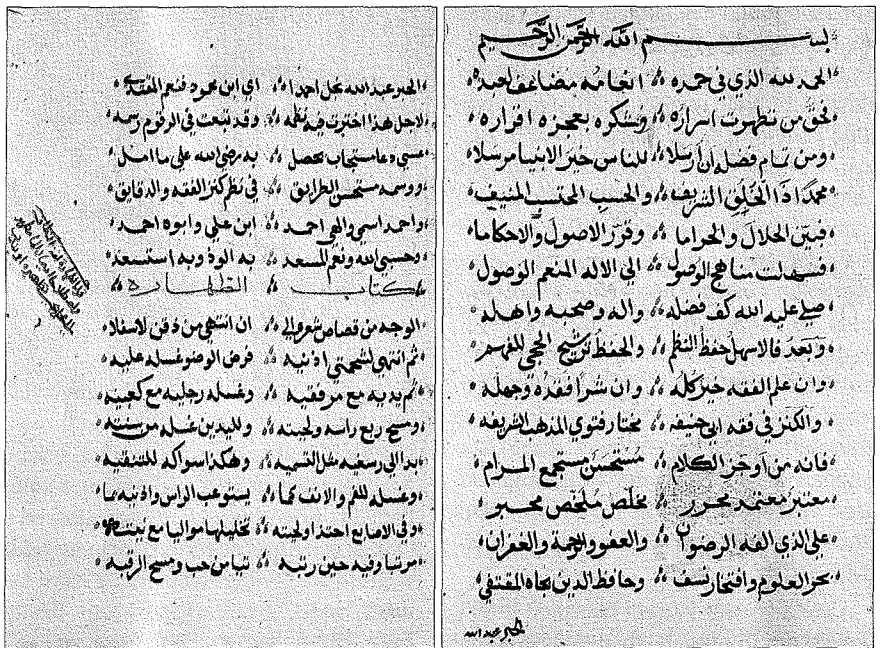 بسم الله الرحمن الرحيم
الحمد لله الذي في حمده انعامه مضاعف لعبده
فحق من تظهرت اسراره وشكره بعجزه اقراره
ومن تمام فضله ان ارسلا للناس خير الانبيا مرسلا
محمدا ذا الخلق الشريف والحسب المحتسب المنيف
فبين الحلال والحراما وقرر الاصول والاحكاما
فسهلت مناهج الوصول الى الاله المنعم الوصول
صلى عليه الله كف فضله واله وصحبه واهله
وبعد فالاسهل حفظ النظم والحفظ ترشيح الحجى للفهم
وان علم الفقه خير كله وان شرا فقده وجهله
والكنز في فقه ابي حنيفه مختار فتوي المذهب الشريفه
فانه من اوجز الكلام مستحسن مستجمع المرام
معتبر معتمد محرر مخلص ملخص محبر
علي الذي الفه الرضوان والعفو والرحمة والغفران
بحر العلوم وافتخار نسف وحافظ الدين بجاه المقتفي
الحبر عبد الله
الحبر عبد الله نجل احمدا اي ابن محمود فنعم المقتدى
لاجل هذا اخترت فيه نظمه وقد تبعت في الرقوم رسمه
عسى دعا مستجاب يحصل به رضى الله على ما امل
ووسمه مستحسن الطرايق في نظم كنز الفقه والدقايق
واحمد اسمي والهي احمد ابن علي وابوه احمد
وحسبي الله ونعم المسعد به الوذ وبه استسعد
كتاب الطهارة
الوجه من قصاص شعر الى ان انتهى من ذقن لاسفلا
ثم انتهى لشحمتي اذنيه فرض الوضو غسله عليه
ثم يديه مع مرفقيه وغسله رجليه مع كعبيه
ومسح ربع راسه ولحيته ولليدين غسله من سنته
بدا الى رسغيه مثل التسميه وهكذا سواكه للتنقيه
وغسله للفم والانف كما يستوعب الراس والاذنيه بما
وفي الاصابع احتذا ولحيته تخليلها مواليا مع نيته
مرتبا وفيه حين رتبه تيامن حب ومسح الرقبه